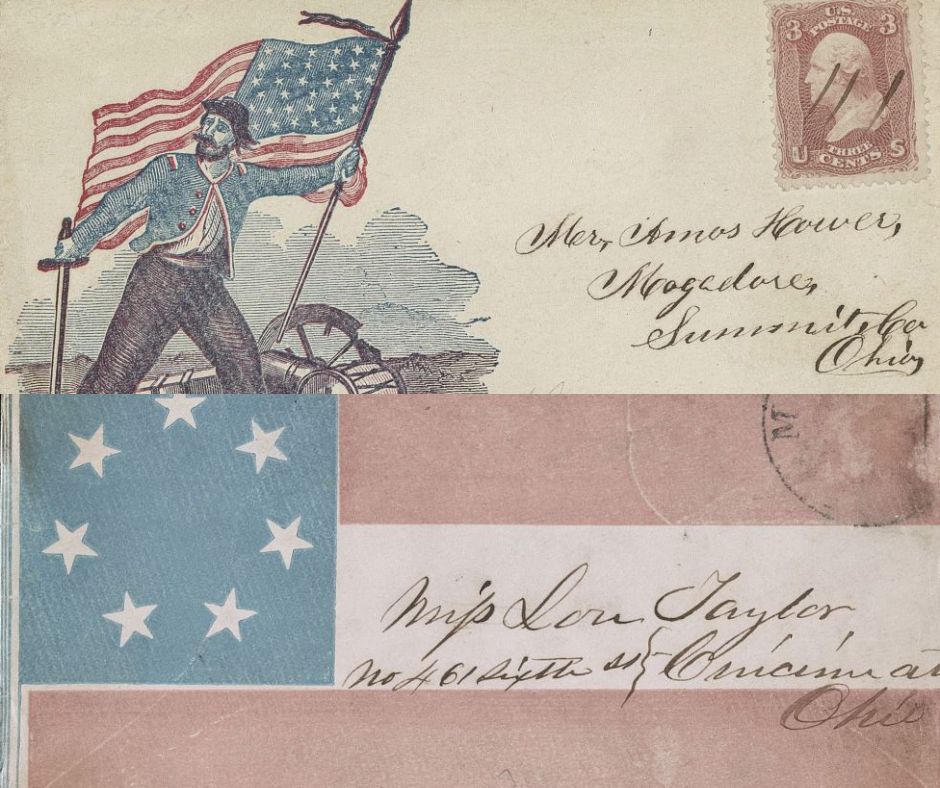 U.S.
POSTAGE
3 3
THREE
CENTS
U S
Mr. Amos Hower,
Mogadore,
Summit, Co
Ohio,
N
Miss Lou Taylor
No 461 sixth st
Cincinnat
Ohio